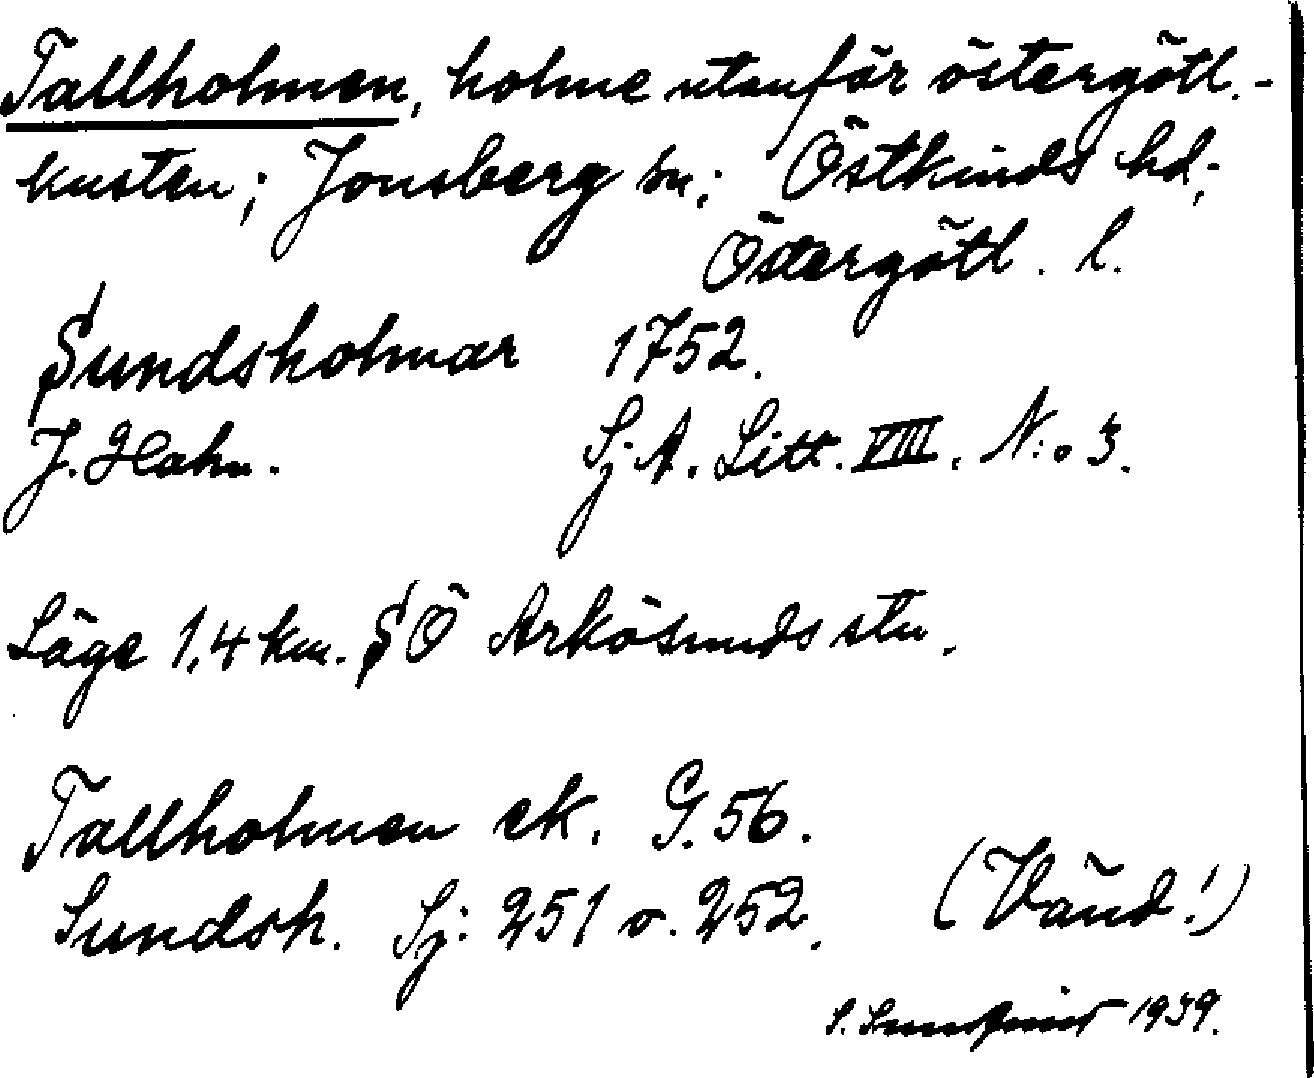 Tallholmen, holme utanför östergötl.-
kusten; Jonsberg sn.; Östkinds hd.;
Östergötl. l.
Sundsholmar 1752.
J. Hahn. Sj. A. Litt. VIII. N:o 3.
Läge 1,4 km. SÖ Arkösunds stn.
Tallholmen ek. G. 56.
Sundsh. Sj: 251 o. 252. (Vänd!)
S. 1939.